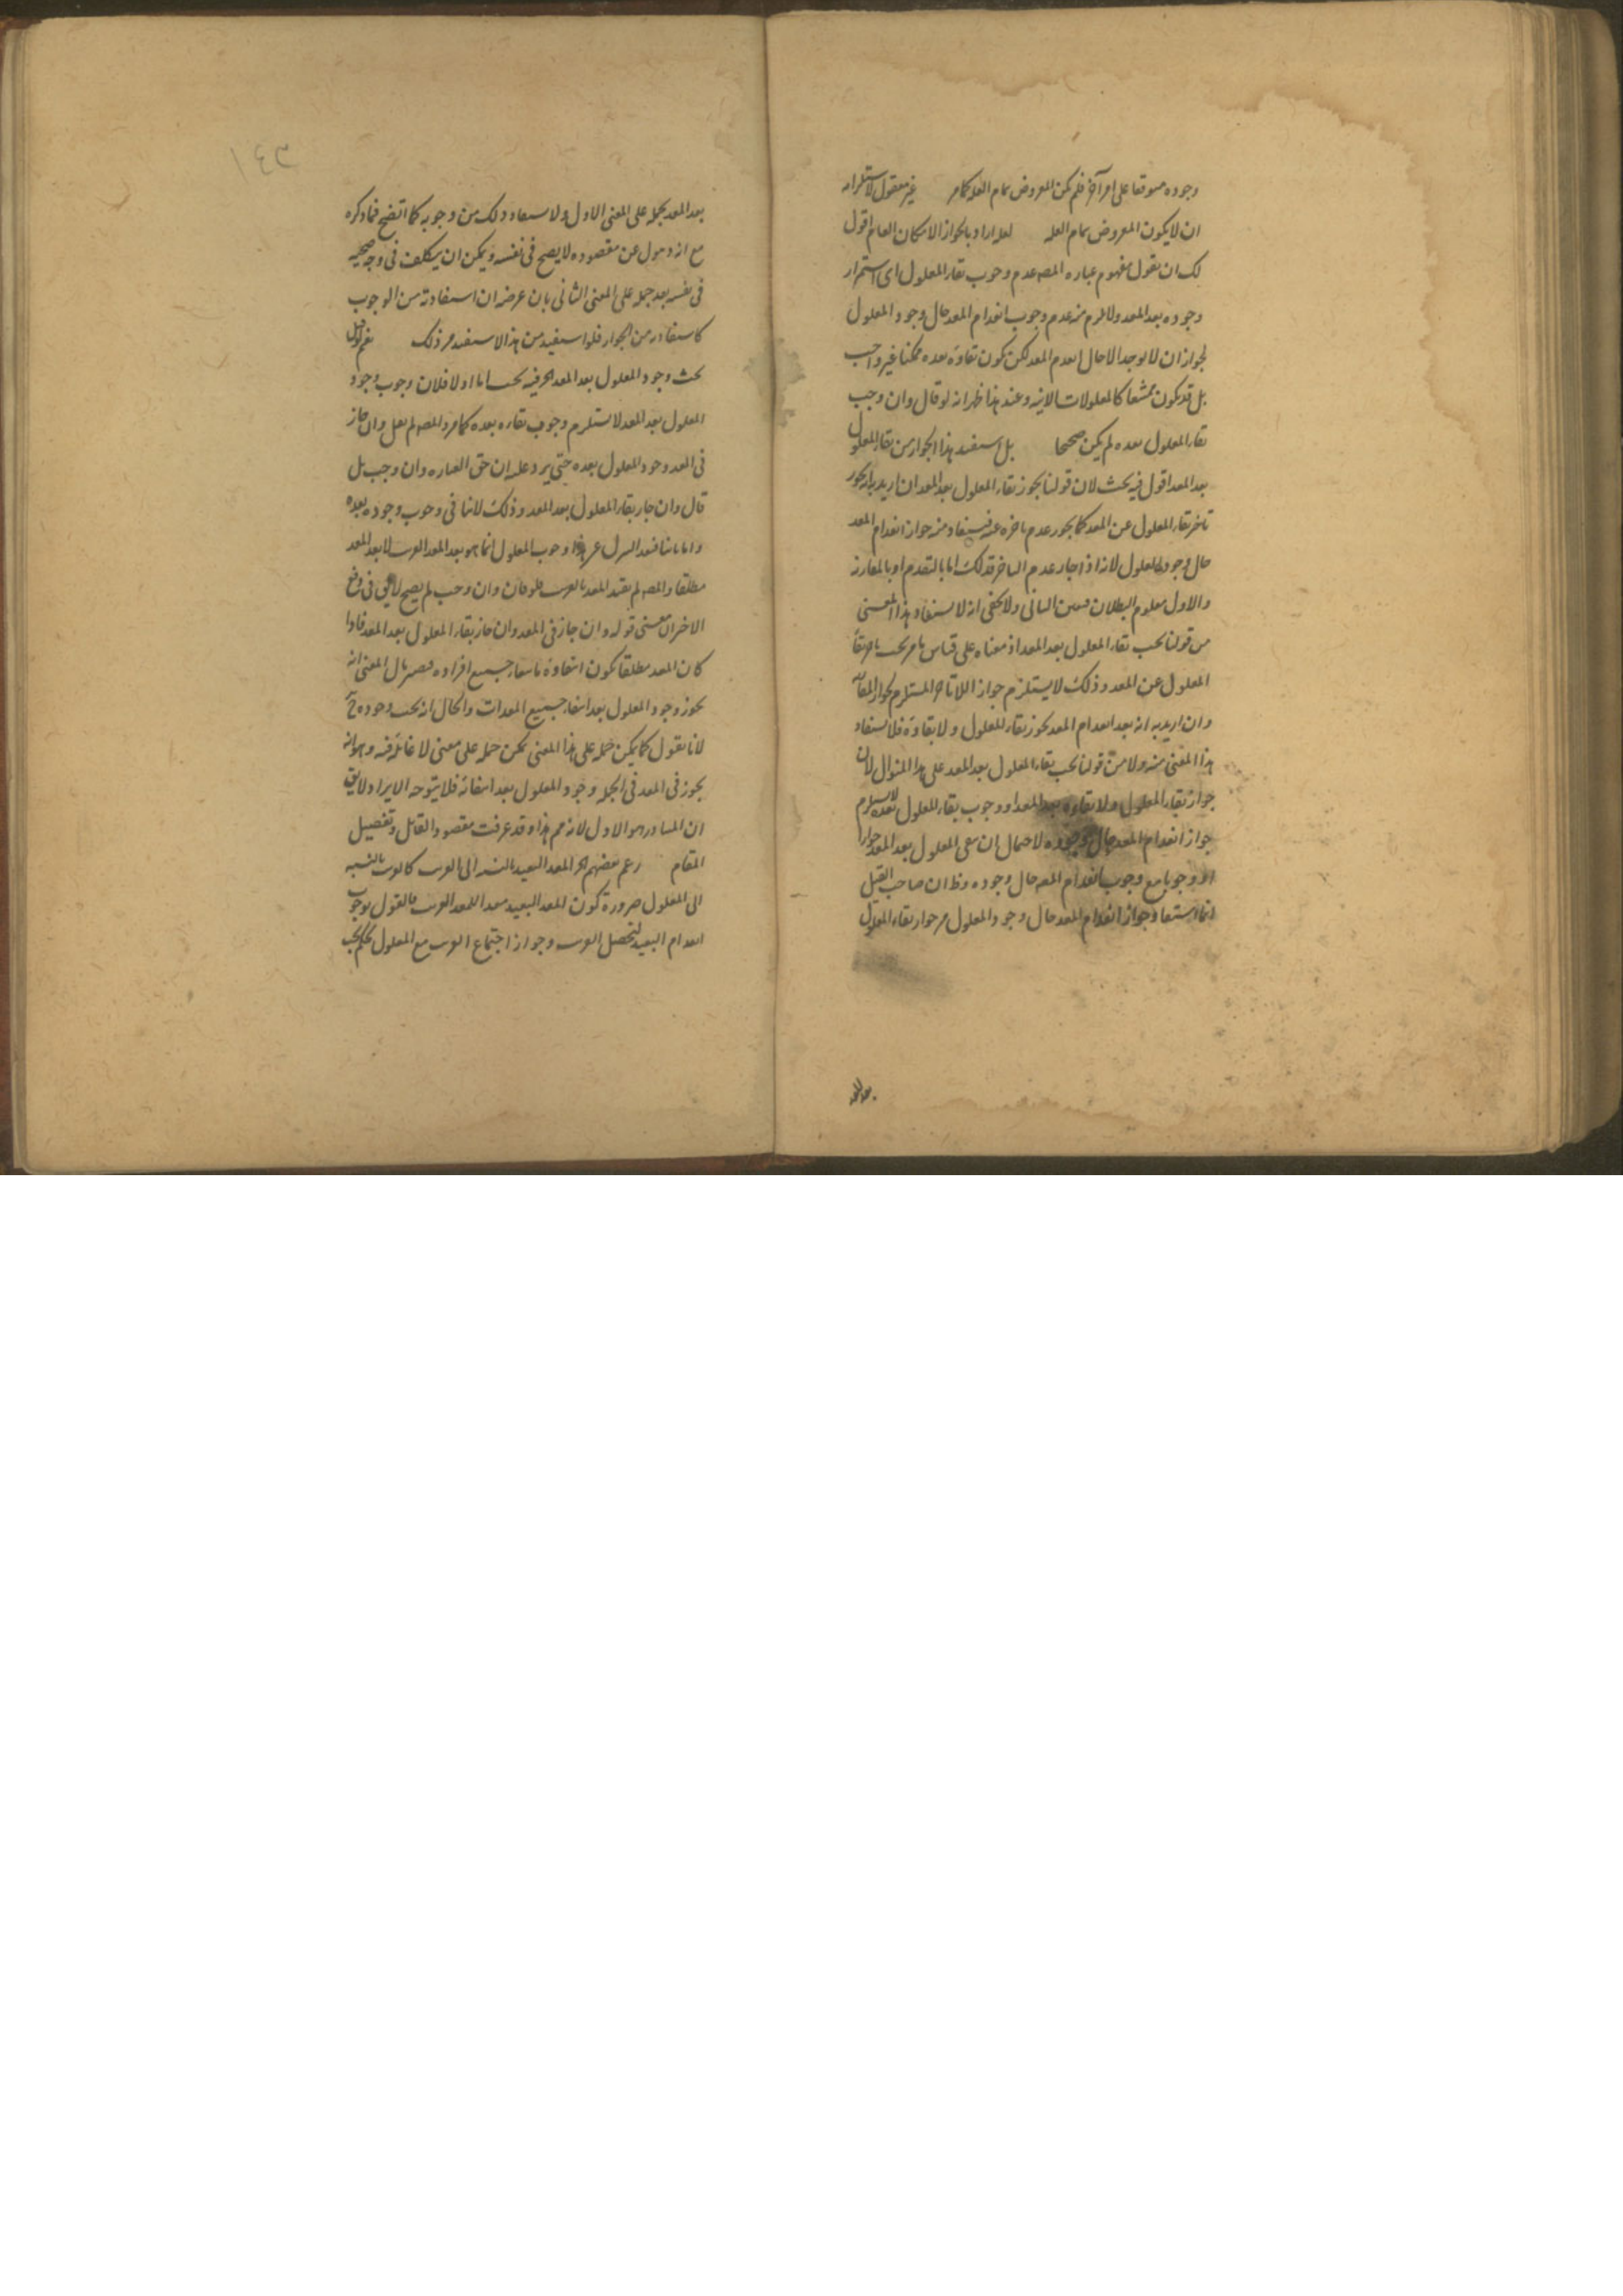 وجوده موقوفا على امر آخر فلم يكن المعروض تمام العله كما مر غير معقول لاستلزامه
ان لا يكون المعروض تمام العله لعله اراد بالجواز الامكان العام اقول
لك ان تقول مفهوم عباره المصه عدم وجوب بقاء المعلول اى استمرار
وجوده بعد المعد ولا يلزم منه عدم وجوب انعدام المعد حال وجود المعلول
لجواز ان لا يوجد الا حال انعدم المعد لكن يكون بقاؤه بعده ممكنا غير واجب
بل قد يكون ممتنعا كالمعلولات الانيه وعند هذا ظهر انه لو قال وان وجب
بقاء المعلول بعده لم يكن صحيحا بل استفيد هذا الجواز من بقاء المعلول
بعد المعد اقول فيه بحث لان قولنا يجوز بقاء المعلول بعد المعد ان اريد به انه يجوز
تاخر بقاء المعلول عن المعد كما يجوز عدم تاخره عنه فيستفاد منه جواز انعدام المعد
حال وجود المعلول لانه اذا جاز عدم التاخر فذلك اما بالتقدم او بالمقارنه
والاول معلوم البطلان فتعين الثانى ولا يخفى انه لا يستفاد هذا المعنى
من قولنا يجب بقاء المعلول بعد المعد اذ معناه على قياس ما مر يجب تاخر بقاء
المعلول عن المعد وذلك لا يستلزم جواز اللاتاخر المستلزم لجواز المقارنه
وان اريد به انه بعد انعدام المعد يجوز بقاء المعلول ولا بقاؤه فلا يستفاد
هذا المعنى منه ولا من قولنا يجب بقاء المعلول بعد المعد على هذا المنوال لان
جواز بقاء المعلول ولا بقاؤه بعد المعد او وجوب بقاء المعلول بعده لا يستلزم
جواز انعدام المعد حال وجوده لاحتمال ان يبقى المعلول بعد المعد جوازا
او وجوبا مع وجوب انعدام المعد حال وجوده وظ ان صاحب القيل
انما استفاد جواز انعدام المعد حال وجود المعلول من جواز بقاء المعلول
بعد المعد
١٤٣
بعد المعد بحمله على المعنى الاول ولا يستفاد ذلك من وجوبه كما اتضح فما ذكره
مع انه ذهول عن مقصوده لا يصح فى نفسه ويمكن ان يتكلف فى وجه صحته
فى نفسه بعد حمله على المعنى الثانى بان غرضه ان استفادته من الوجوب
كاستفادته من الجواز فلو استفيد من هذا لاستفيد من ذلك نعم لو قيل
بحث وجود المعلول بعد المعد اه فيه بحث اما اولا فلان وجوب وجود
المعلول بعد المعد لا يستلزم وجوب بقاءه بعده كما مر والمصه لم يقل وان جاز
فى المعد وجود المعلول بعده حتى يرد عليه ان حق العباره وان وجب بل
قال وان جاز بقاء المعلول بعد المعد وذلك لا ينافى وجوب وجوده بعده
واما ثانيا فبعد التنزل عن هذا وجوب المعلول انما هو بعد المعد القريب لا بعد المعد
مطلقا والمصه لم يقيد المعد بالقريب فلو قال وان وجب لم يصح لا يقال فى دفع
الاخير ان معنى قوله وان جاز فى المعد وان جاز بقاء المعلول بعد المعد فاذا
كان المعد مطلقا يكون انتفاؤه بانتفاء جميع افراده فيصير مآل المعنى انه
يجوز وجود المعلول بعد انتفاء جميع المعدات والحال انه يجب وجوده ح
لانا نقول كما يمكن حمله على هذا المعنى يمكن حمله على معنى لا غائلة فيه وهو انه
يجوز فى المعد فى الجمله وجود المعلول بعد انتفائه فلا يتوجه الايراد ولا يقال
ان المتبادر هو الاول لانه مم هذا وقد عرفت مقصود القائل وتفصيل
المقام زعم بعضهم ان المعد البعيد بالنسبه الى القريب كالقريب بالنسبه
الى المعلول ضرورة كون المعد البعيد معدا للمعد القريب فالقول بوجوب
انعدام البعيد لتحصل القريب وجواز اجتماع القريب مع المعلول تحكم بحت